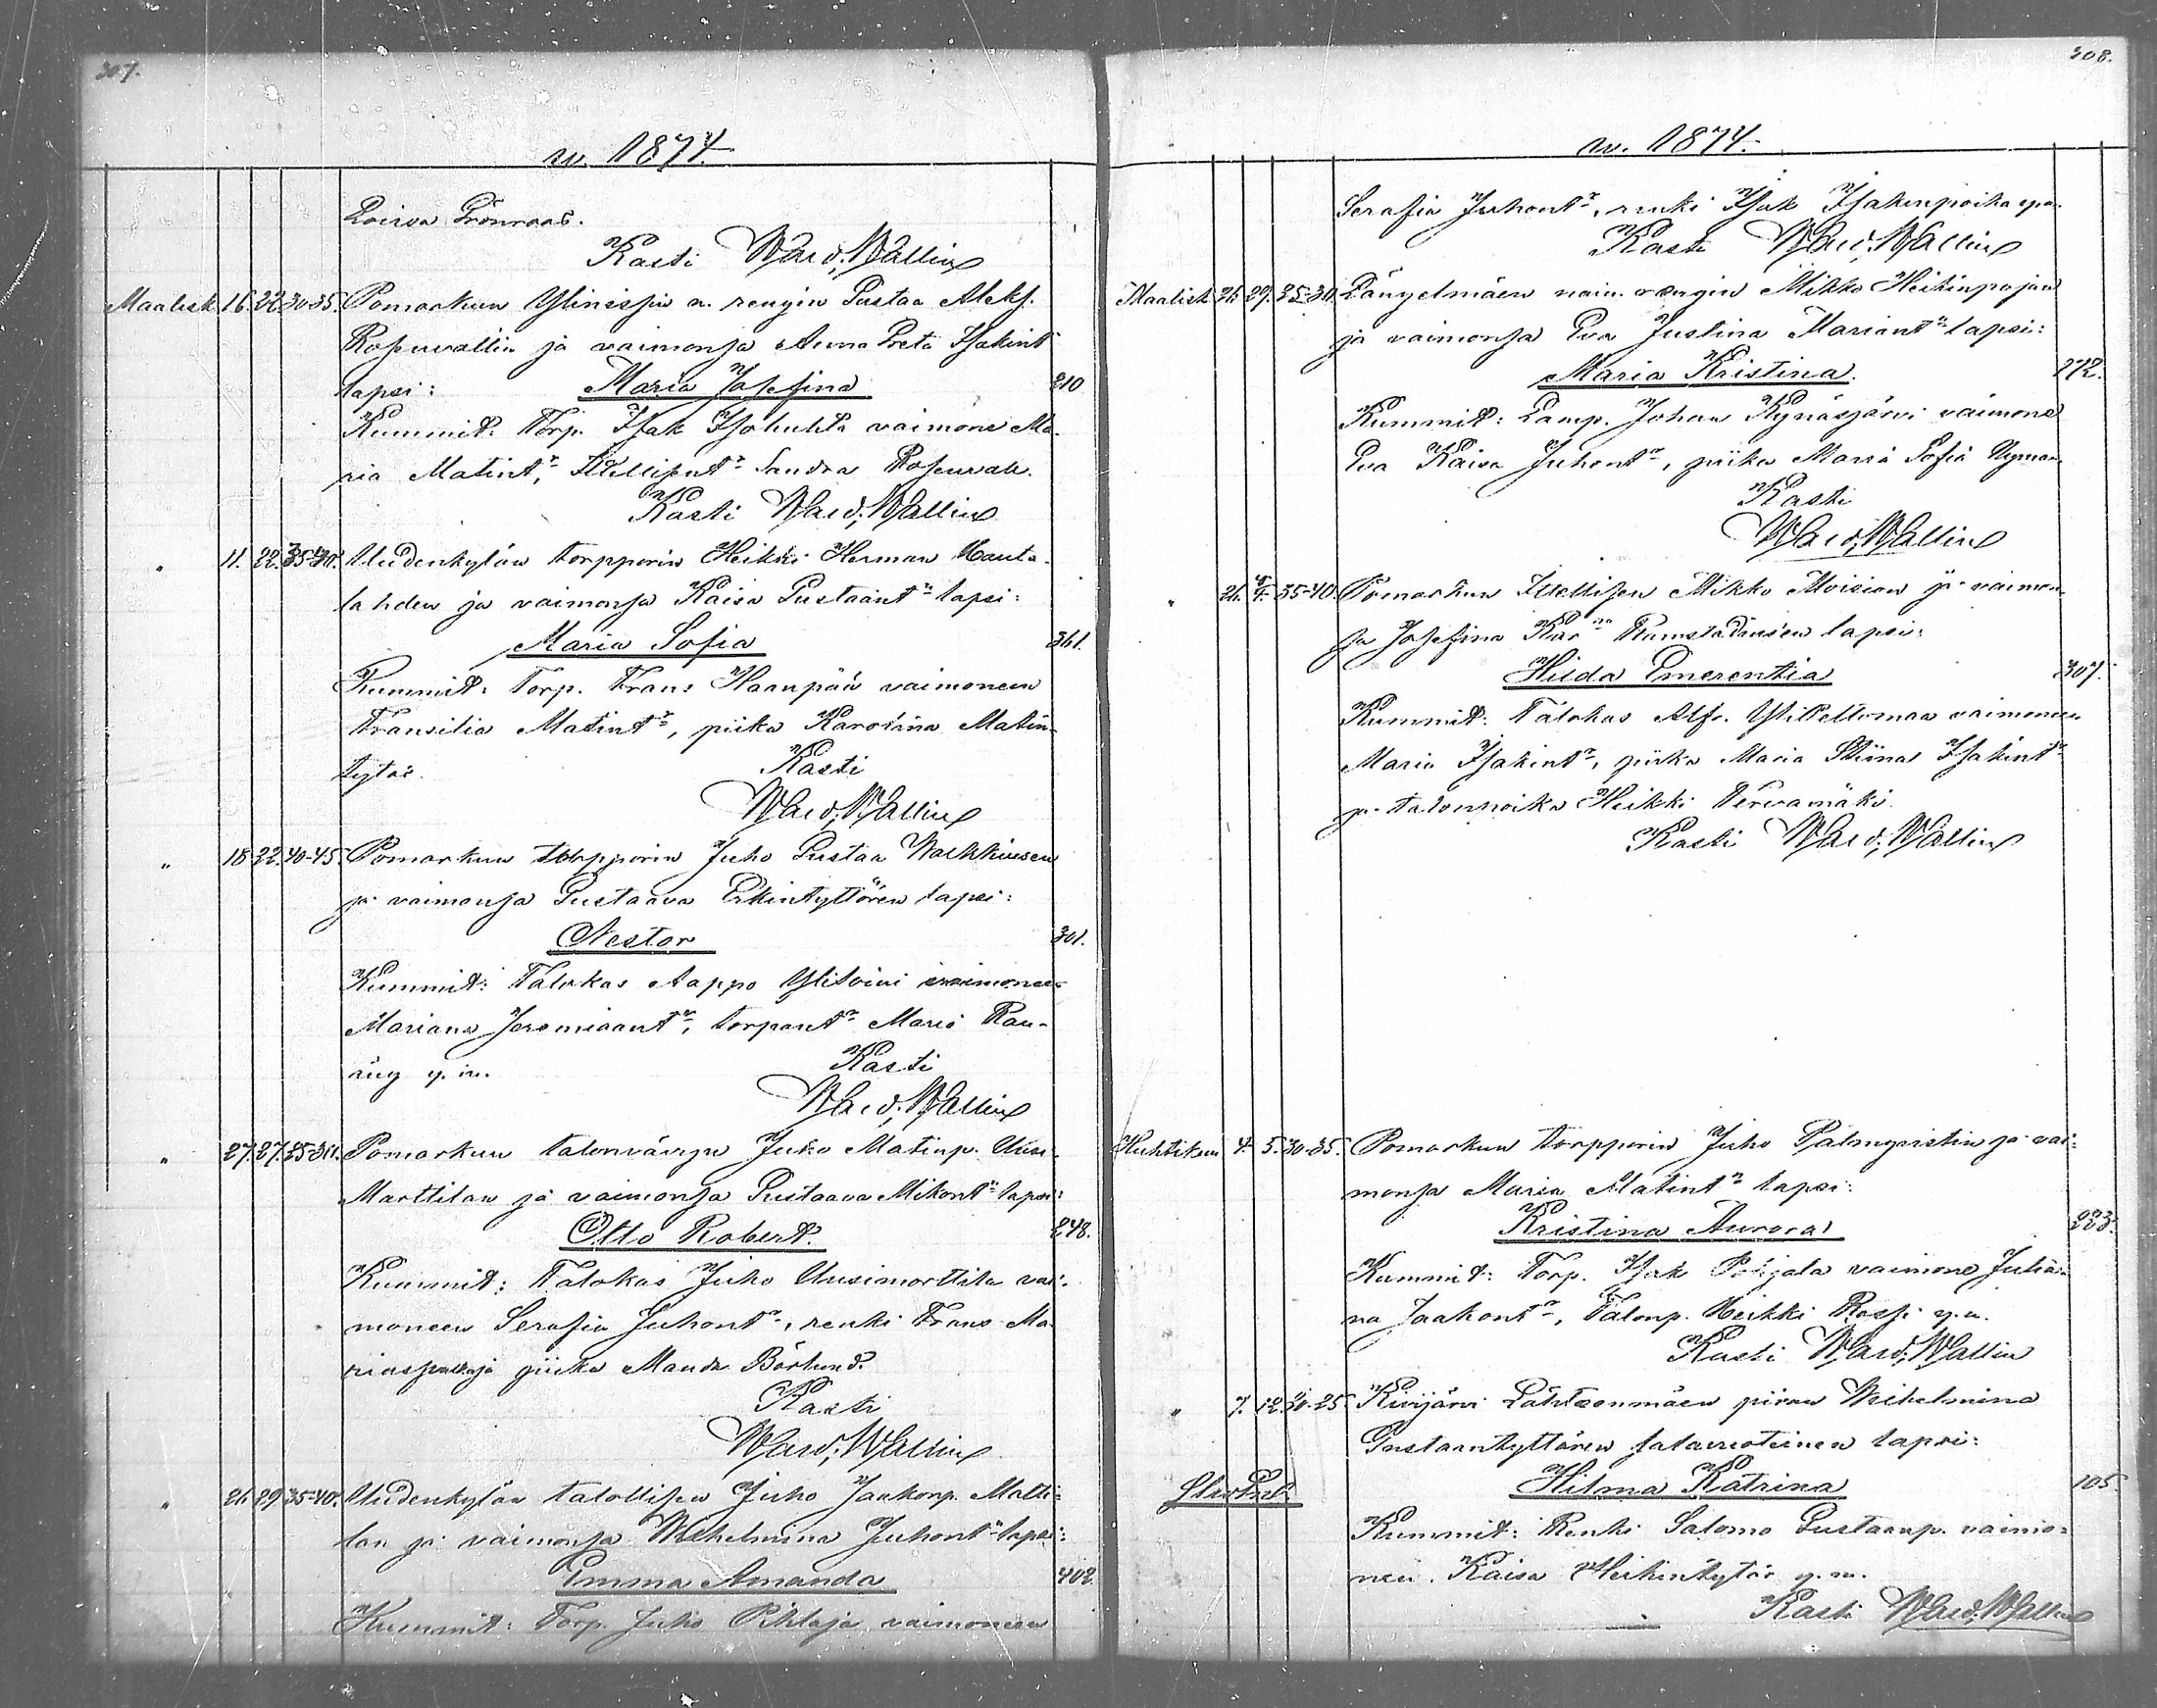 307.
w. 1874.
Loviva Grönroos.
Kasti Ward; Wallin
Maalisk. 16. 22. 30-35. Pomarkun Ylinissin n. rengin Gustaa Aleks.
Rosenvallin ja vaimonsa Anna Greta Isakint
lapsi: Maria Josefina 210
Kummit: Torp. Isak Isohuhta vaimone Ma-
ria Matint:r, Itellisent:r Sandra Rosenvall.
Kasti Ward; Wallin
" 11. 22. 35-40. Uudenkylän torpporin Heikki Herman Hauta-
lahden ja vaimonsa Kaisa Gustaant:n lapsi:
Maria Sofia 361.
Kummit: Torp. Frans Haanpää vaimoneen
Fransilia Matint:r, piika Karolina Matin-
tytär. Kasti
Ward; Wallin
" 18 22. 40-45. Pomarkun torpporin Juho Gustaa Wachkiusen
ja vaimonsa Gustaava Erkintyttären lapsi:
Nestor 301.
Kummit: Talokas Aappo Ylitoivi vaimoneen
Mariana Jeremiaant:r, torpant:r Maria Ran-
äng y. m. Kasti
Ward; Wallin
" 27. 27. 25-30. Pomarkun talonvävyn Juho Matinp. Uusi-
Marttilan ja vaimonsa Gustaava Mikont:n lapsi:
Otto Robert. 248.
Kummit: Talokas Juho Uusimarttila vai-
moneen Serafia Juhont:r, renki Frans Ma-
piika Manda Börlund.
Kasti
Ward; Wallin
" 26 29 35-40. Uudenkylän talollisen Juho Jaakonp. Matti-
lan ja vaimonsa Wilhelmina Juhont:n lapsi:
Emma Amanda 402.
Kummit: Torp. Juho Pihlaja vaimoneen
308.
w. 1874.
Serafia Juhont:r, renki Isak Isakinpoika
Kasti Ward; Wallin
Maalisk 26. 29. 25-30. Längelmäen nain. rengin Mikko Heikinpojan
ja vaimonsa Eva Justina Mariant:n lapsi:
Maria Kristina. 272.
Kummit: Lamp. Johan Kynäsjärvi vaimone
Eva Kaisa Juhont:r, piika Maria Sofia Nyman
Kasti
Ward; Wallin
" 26. 4/4. 35-40. Pomarkun Itellisen Mikko Moision ja vaimon-
sa Josefina Kar:na Ramstadiusen lapsi:
Hilda Emerentia 307.
Kummit: Talokas Alfr. Ylipeltomaa vaimoneen
Maria Isakint:r, piika Maria Stiina Isakint:r
ja talonpoika Heikki Tervamäki.
Kasti Ward; Wallin
Huhtikuu 4. 5. 30-35. Pomarkun torpporin Juho Palmqvistin ja vai-
monsa Maria Matint:n lapsi:
Kristina Aurora 223.
Kummit: Torp. Isak Pohjala vaimone Julia-
na Jaakont:r, Talonp. Heikki Rossi y. m.
Kasti Ward; Wallin
" 7. 12. 20-25. Kivijärvi Lähteenmäen piian Wilhelmina
Gustaantyttären salavuoteinen lapsi:
Hilma Katrina 105
Kummit: Renki Salomo Gustaanp. vaimo-
neen Kaisa Heikintytär y. m.
Kasti Ward; Wallin